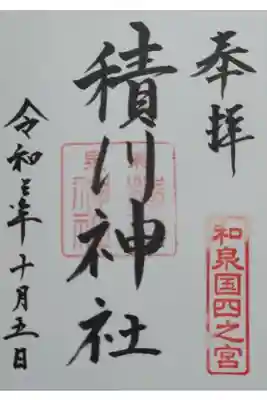 奉拝
和泉国四之宮
積川神社
令和三年十月五日